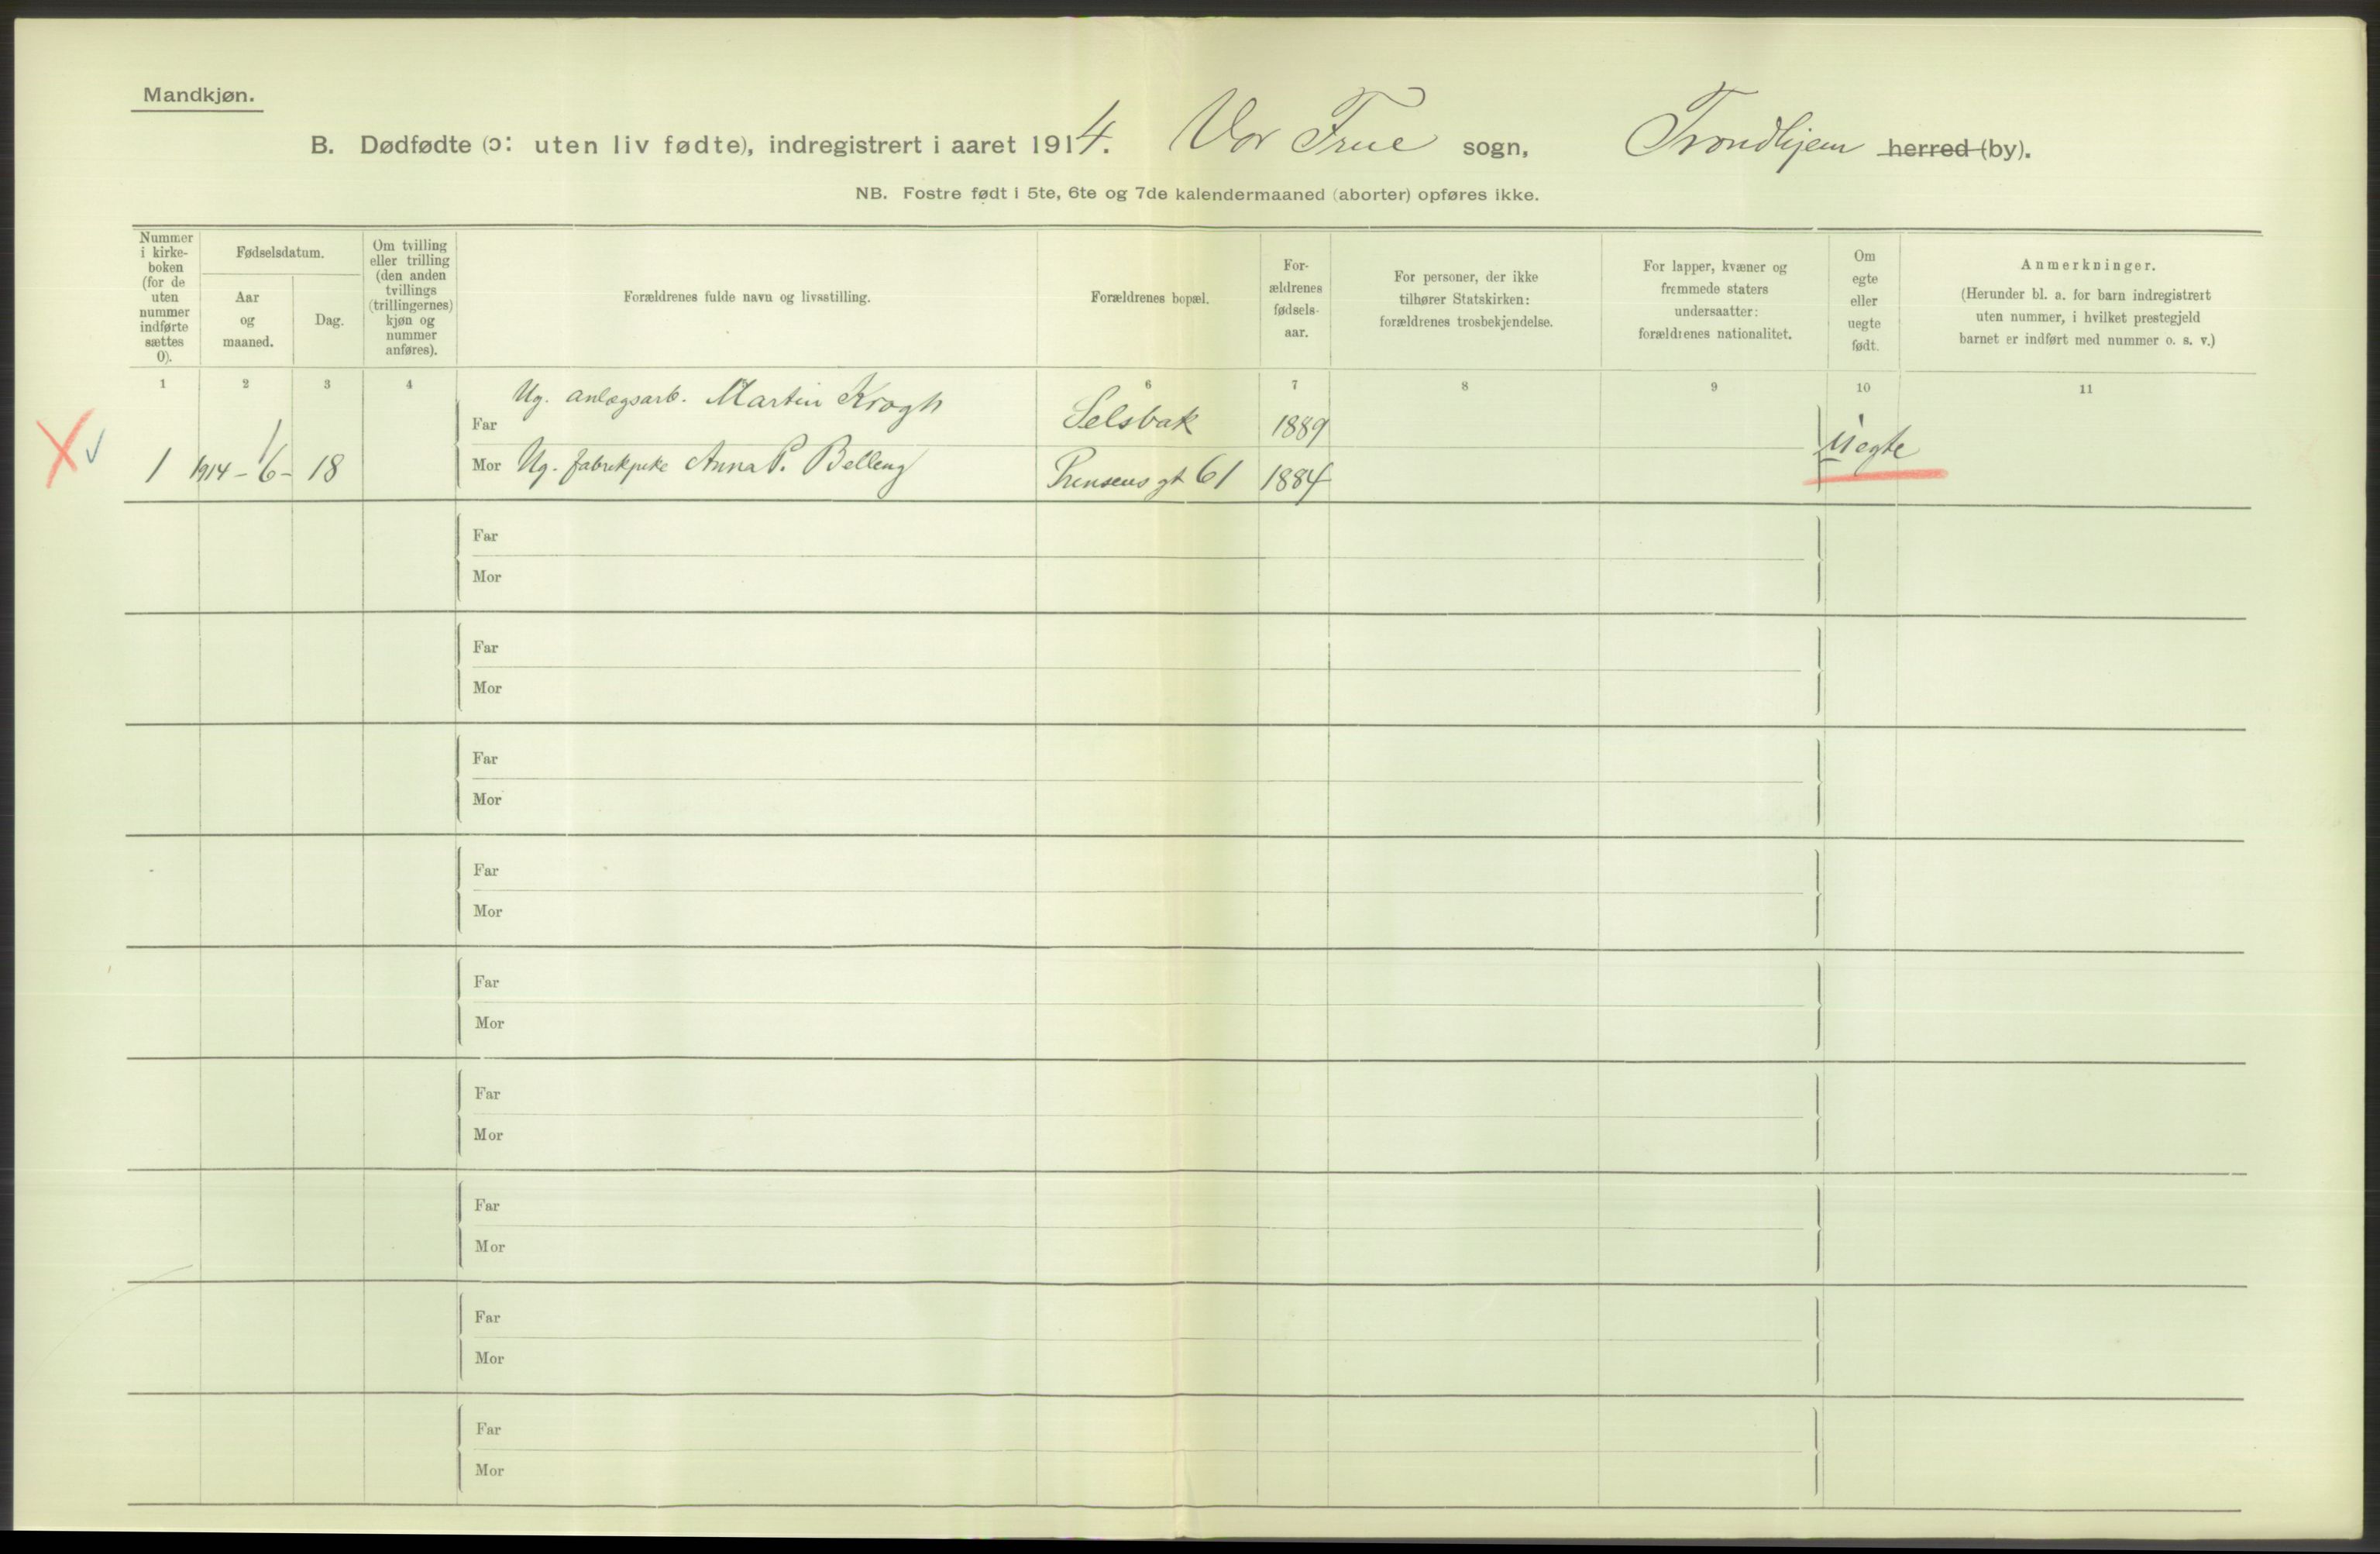 Mandkjøn.
B. Dødfødte (ɔ: uten liv fødte), indregistrert i aaret 1914. Vor Frue sogn, Trondhjem herred (by).
NB. Fostre født i 5te, 6te og 7de kalendermaaned (aborter) opføres ikke.
Nummer
i kirke-
boken
(for de
uten
nummer
indførte
sættes
0).
Fødselsdatum.
Aar
og
maaned.
Dag.
Om tvilling
eller trilling
(den anden
tvillings
(trillingernes)
kjøn og
nummer
anføres).
Forældrenes fulde navn og livsstilling.
Forældrenes bopæl.
For-
ældrenes
fødsels-
aar.
For personer, der ikke
tilhører Statskirken:
forældrenes trosbekjendelse.
For lapper, kvæner og
fremmede staters
undersaatter:
forældrenes nationalitet.
Om
egte
eller
uegte
født.
Anmerkninger.
(Herunder bl. a. for barn indregistrert
uten nummer, i hvilket prestegjeld
barnet er indført med nummer o. s. v.)
1 2 3 4 6 7 8 9 10 11
Far Ug. anlægsarb. Martin Krogh Selsbak 1889
1 1914 - 6 - 18 Mor Ug. fabrikpike Anna P. Belleng Prinsens gt 61 1884 Uegte
Far
Mor
Far
Mor
Far
Mor
Far
Mor
Far
Mor
Far
Mor
Far
Mor
Far
Mor
Far
Mor